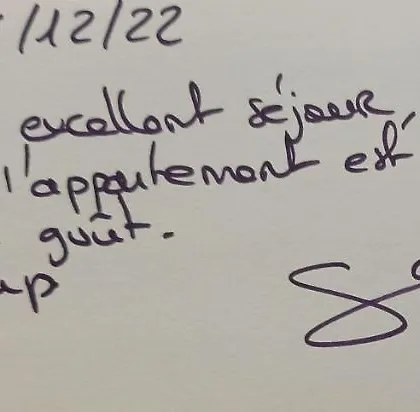 /12/22
excellent séjour
l'appartement est
goût.
up